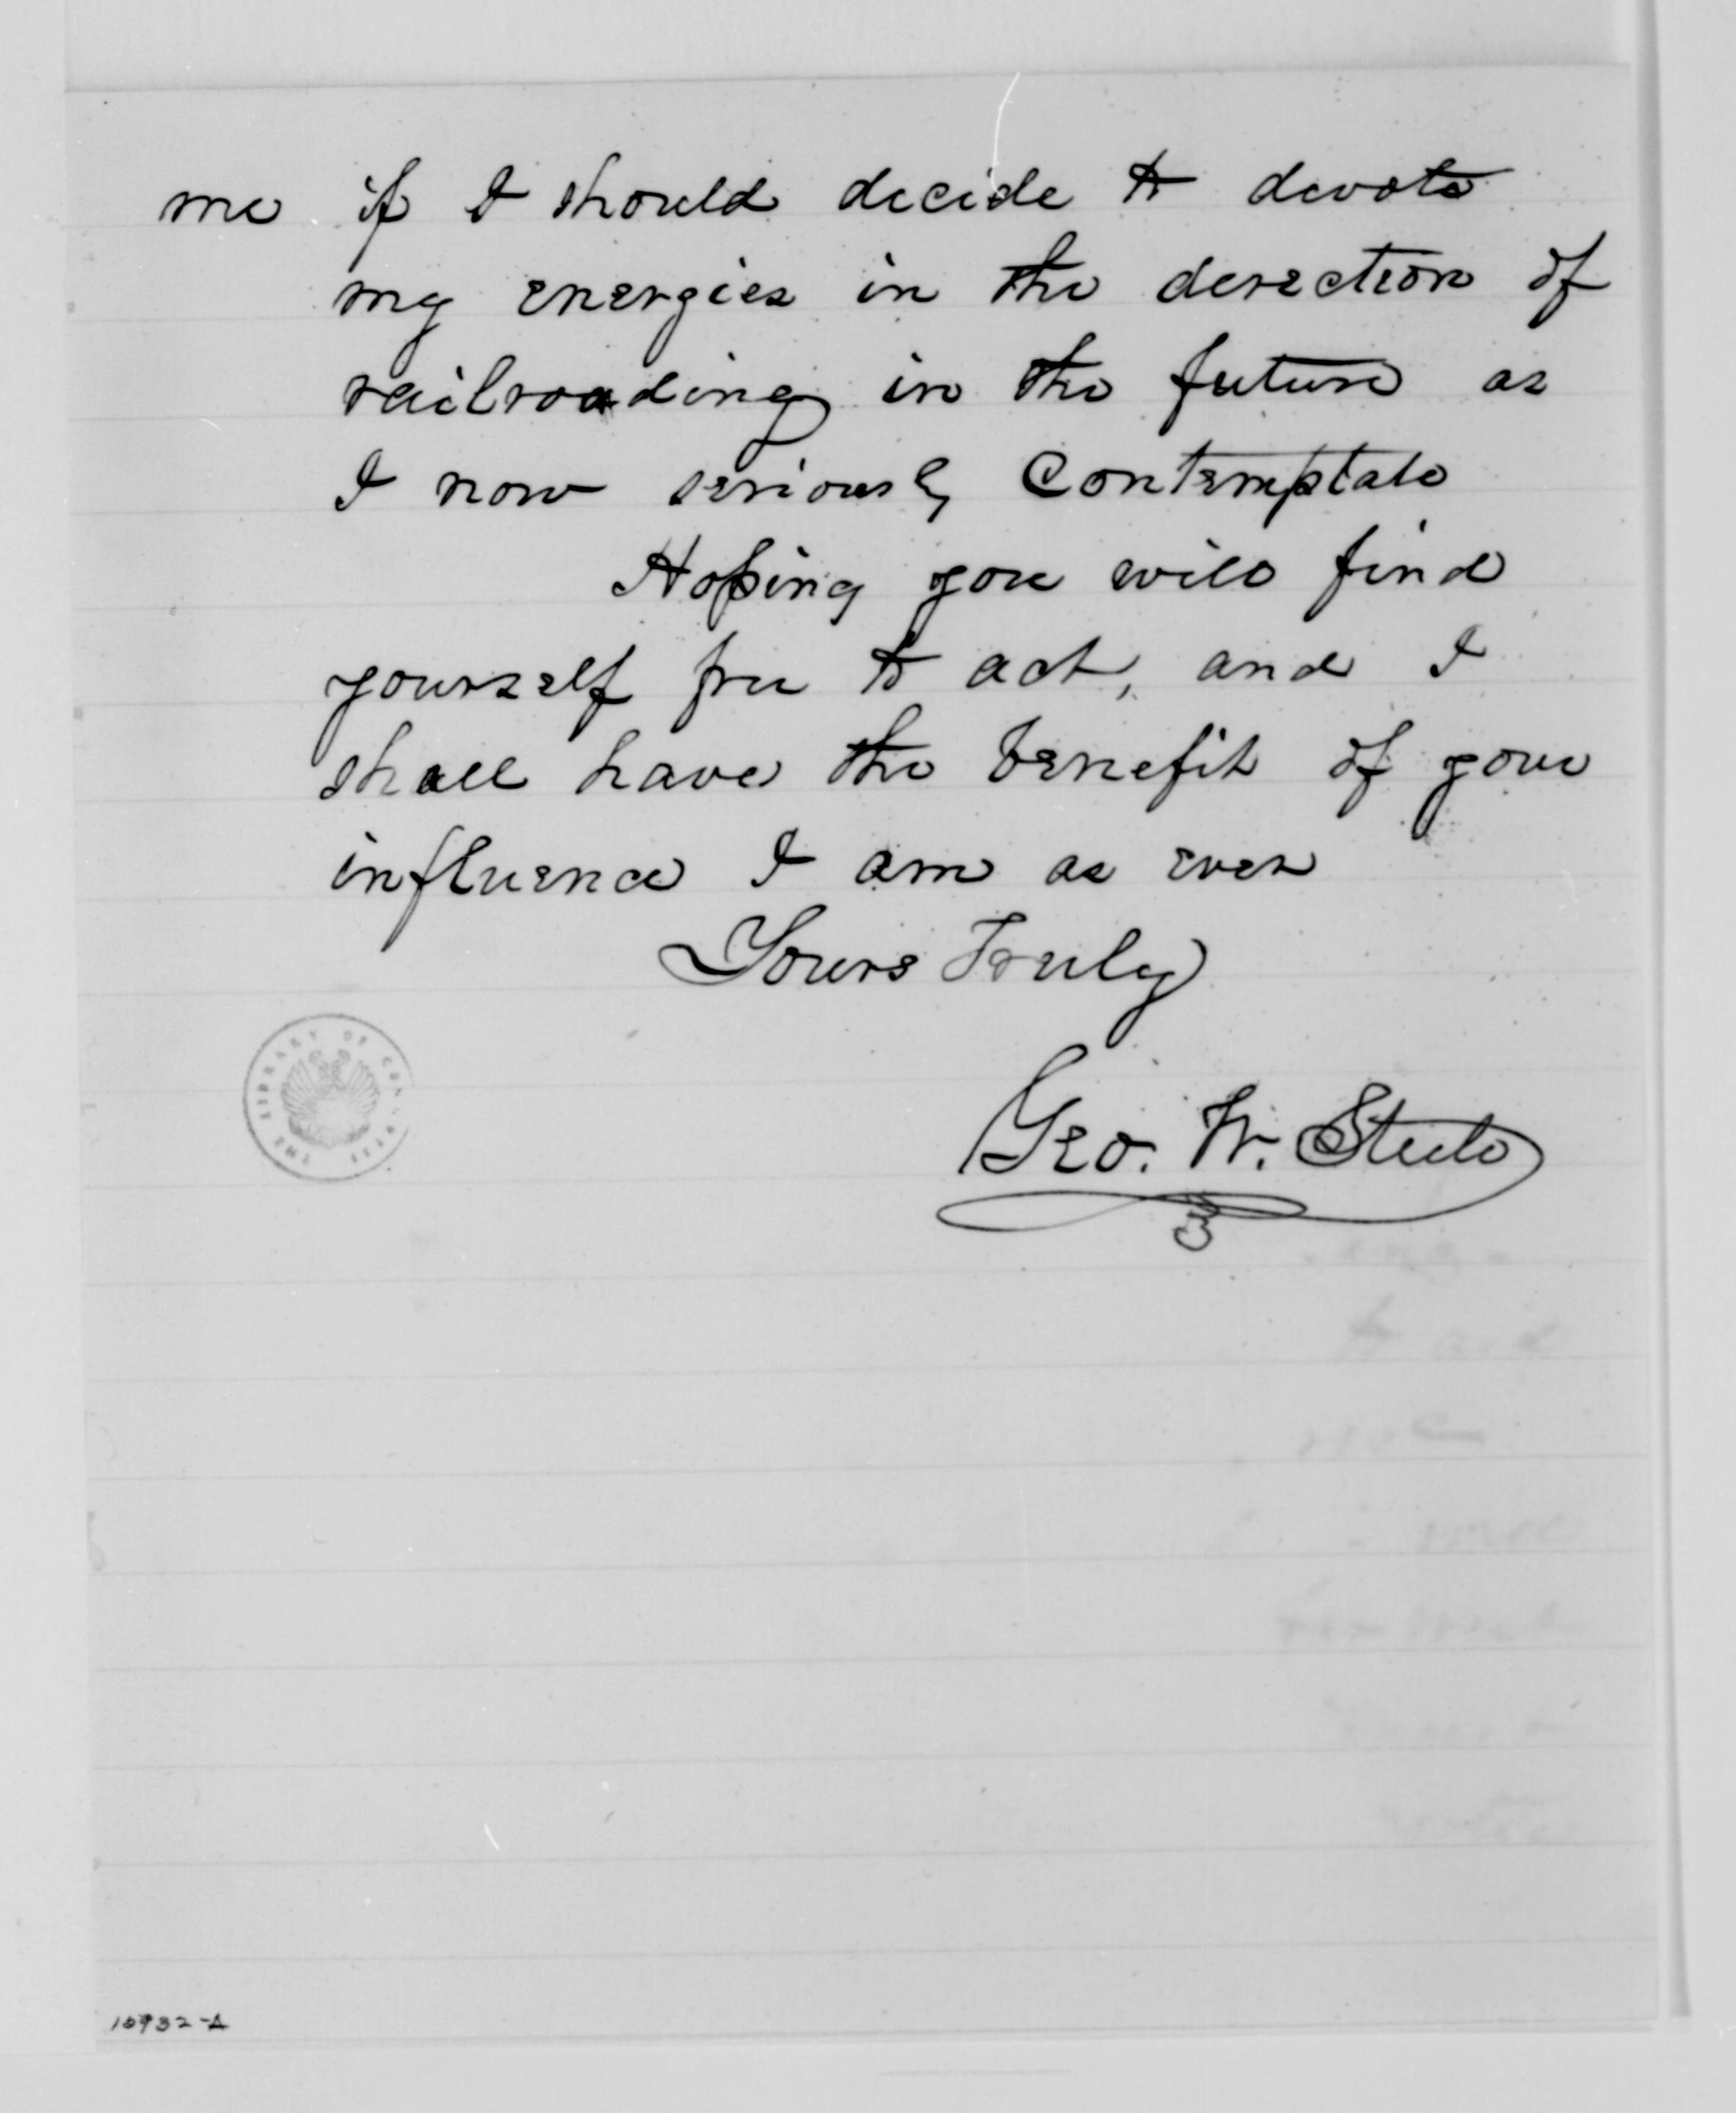 me if I should decide to devote
my energies in the derection of
railroading in the future as
I now seriously Contemplate
Hoping you will find
yourself free to act, and I
shall have the benefit of your
influence I am as ever
Yours Truly
Geo. W. Steele
THE LIBRARY OF CONGRESS
10932-A